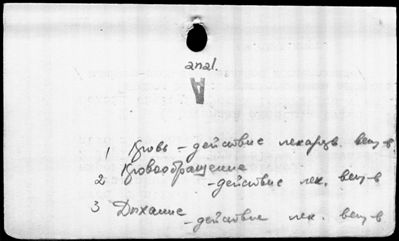 anal.
A
1 Кровь – действие лекарств. вещ-в
2 Кровообращение
– действие лек. вещ-в
3 Дыхание
– действие лек. вещ-в